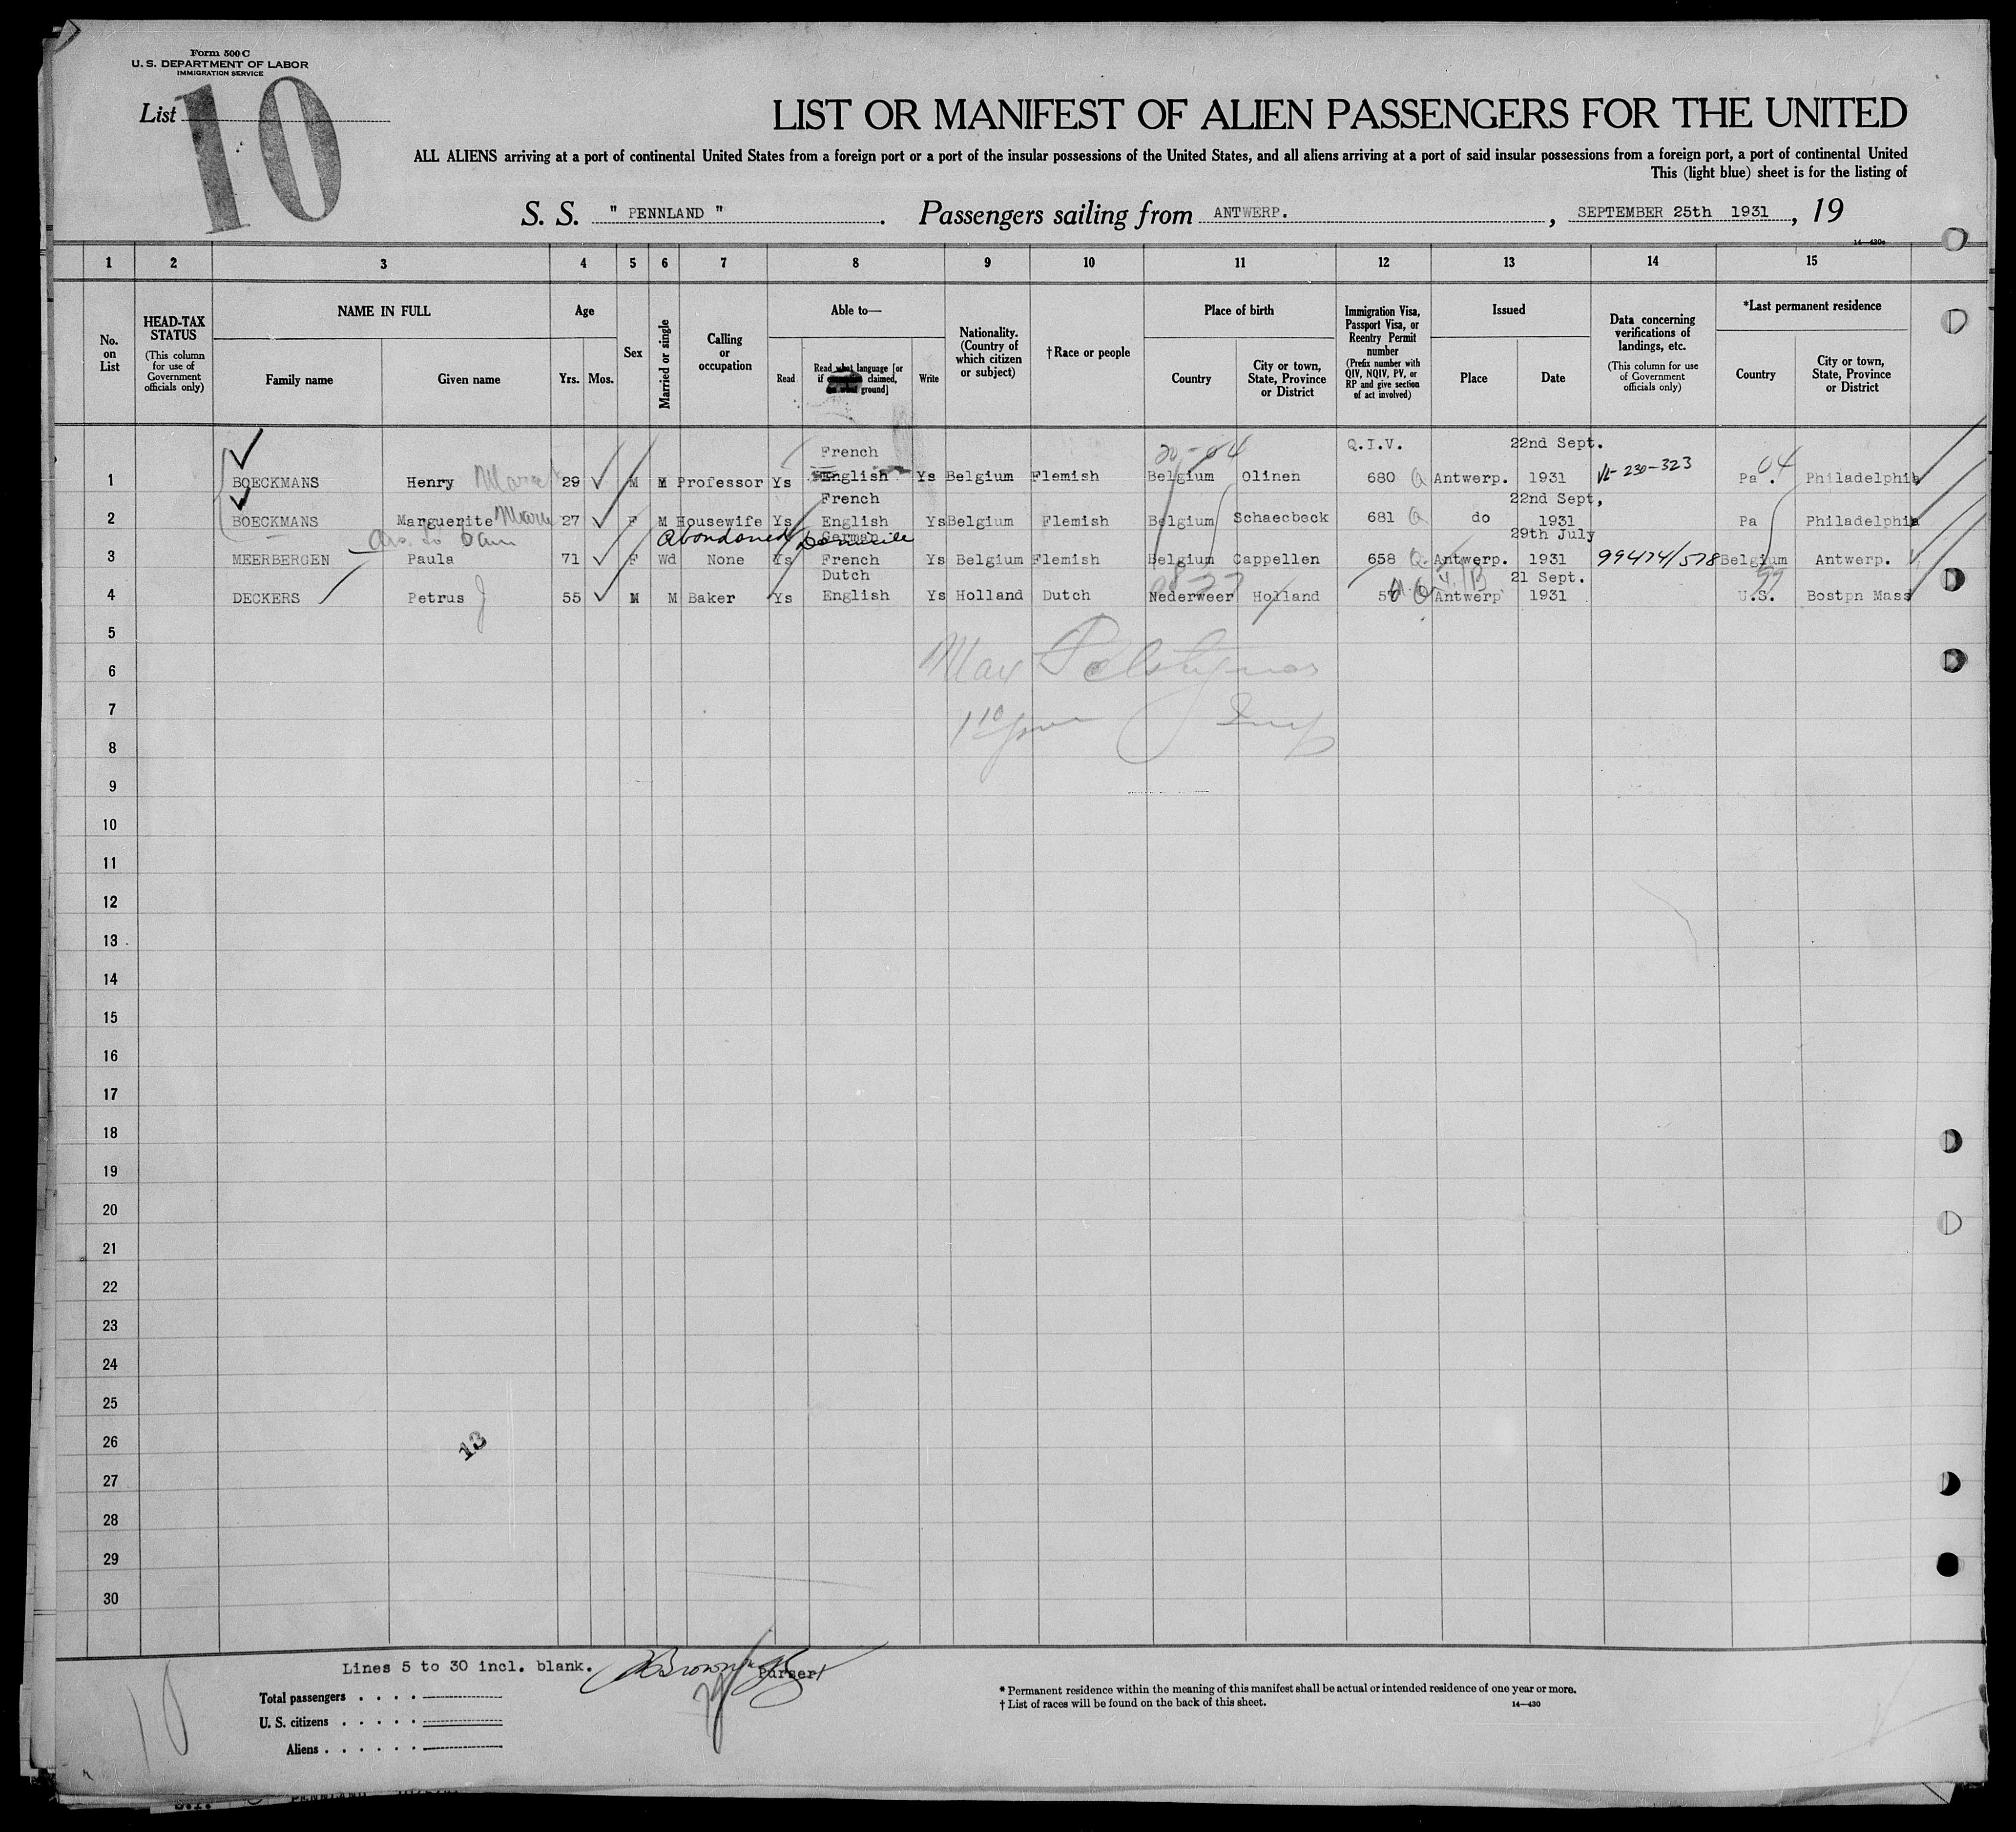 Form 500 C
U. S. DEPARTMENT OF LABOR
IMMIGRATION SERVICE
List 10
LIST OR MANIFEST OF ALIEN PASSENGERS FOR THE UNITED
ALL ALIENS arriving at a port of continental United States from a foreign port or a port of the insular possessions of the United States, and all aliens arriving at a port of said insular possessions from a foreign port, a port of continental United
This (light blue) sheet is for the listing of
S. S. " PENNLAND ". Passengers sailing from ANTWERP. , SEPTEMBER 25th 1931 , 19
14—430c
1 2 3 4 5 6 7 8 9 10 11 12 13 14 15
No. on List
HEAD-TAX STATUS (This column for use of Government officials only)
NAME IN FULL
Family name
Given name
Age
Yrs. Mos.
Sex
Married or single
Calling or occupation
Able to—
Read
Read what language [or if claimed, ground]
Write
Nationality. (Country of which citizen or subject)
†Race or people
Place of birth
Country
City or town, State, Province or District
Immigration Visa, Passport Visa, or Reentry Permit number (Prefix number with QIV, NQIV, PV, or RP and give section of act involved)
Issued
Place
Date
Data concerning verifications of landings, etc. (This column for use of Government officials only)
*Last permanent residence
Country
City or town, State, Province or District
French 20-04 Q.I.V. 22nd Sept. 04
1 BOECKMANS Henry 29 M M Professor Ys English Ys Belgium Flemish Belgium Olinen 680 Q Antwerp. 1931 VL-230-323 Pa. Philadelphia
French 22nd Sept,
2 BOECKMANS Marguerite Marie 27 F M Housewife Ys English Ys Belgium Flemish Belgium Schaecbeck 681 Q do 1931 Pa Philadelphia
Abandoned Domicile German 29th July
3 MEERBERGEN Paula 71 F Wd None Ys French Ys Belgium Flemish Belgium Cappellen 658 Q Antwerp. 1931 99474/578 Belgium Antwerp.
Dutch 21 Sept.
4 DECKERS Petrus J 55 M M Baker Ys English Ys Holland Dutch Nederweer Holland Antwerp 1931 U.S. Bostpn Mass
5
6 Max
7
8
9
10
11
12
13
14
15
16
17
18
19
20
21
22
23
24
25
26 13
27
28
29
30
Lines 5 to 30 incl. blank. Purser
10
Total passengers
U. S. citizens
Aliens
* Permanent residence within the meaning of this manifest shall be actual or intended residence of one year or more.
† List of races will be found on the back of this sheet. 14—430